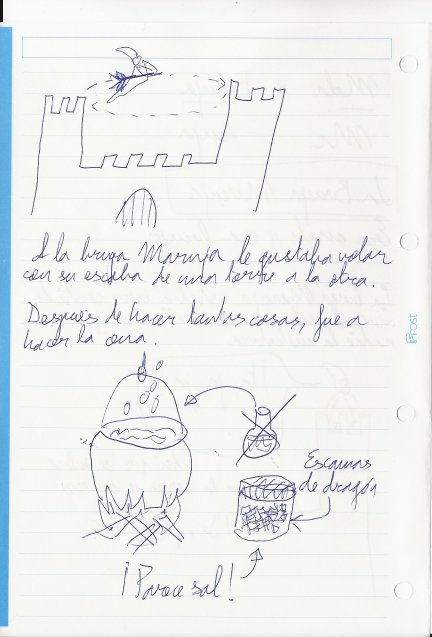 A la bruja Maruja le gustaba volar
con su escoba de una torre a la otra.
Después de hacer tantas cosas, fue a
hacer la cena.
Escamas
de dragón
¡Parece sal!